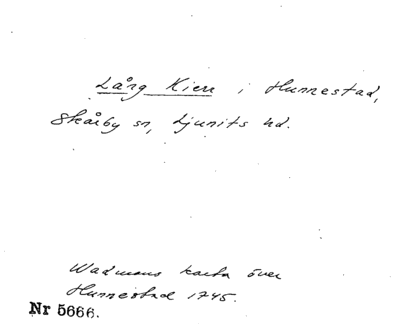 Lång Kierr i Hunnestad,
Skårby sn, Ljunits hd.
Wadmans karta över
Hunnestad 1745.
Nr 5666.